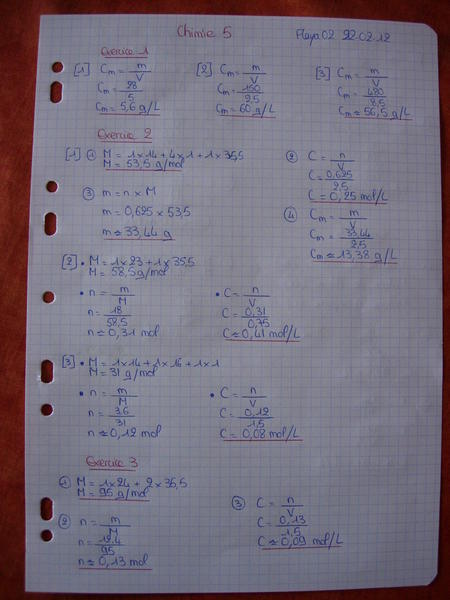 Chimie 5
Flaya02 22.02.12
Exercice 1
[1] Cm = m/V
Cm = 28/5
Cm = 5,6 g/L
[2] Cm = m/V
Cm = 150/2,5
Cm = 60 g/L
[3] Cm = m/V
Cm = 480/8,5
Cm ≈ 56,5 g/L
Exercice 2
[1] ① M = 1×14 + 4×1 + 1×35,5
M = 53,5 g/mol
② C = n/V
C = 0,625/2,5
C = 0,25 mol/L
③ m = n × M
m = 0,625 × 53,5
m ≈ 33,44 g
④ Cm = m/V
Cm = 33,44/2,5
Cm ≈ 13,38 g/L
[2] • M = 1×23 + 1×35,5
M = 58,5 g/mol
• n = m/M
n = 18/58,5
n ≈ 0,31 mol
• C = n/V
C = 0,31/0,75
C ≈ 0,41 mol/L
[3] • M = 1×14 + 1×16 + 1×1
M = 31 g/mol
• n = m/M
n = 3,6/31
n ≈ 0,12 mol
• C = n/V
C = 0,12/1,5
C = 0,08 mol/L
Exercice 3
① M = 1×24 + 2×35,5
M = 95 g/mol
② n = m/M
n = 12,4/95
n ≈ 0,13 mol
③ C = n/V
C = 0,13/1,5
C ≈ 0,09 mol/L